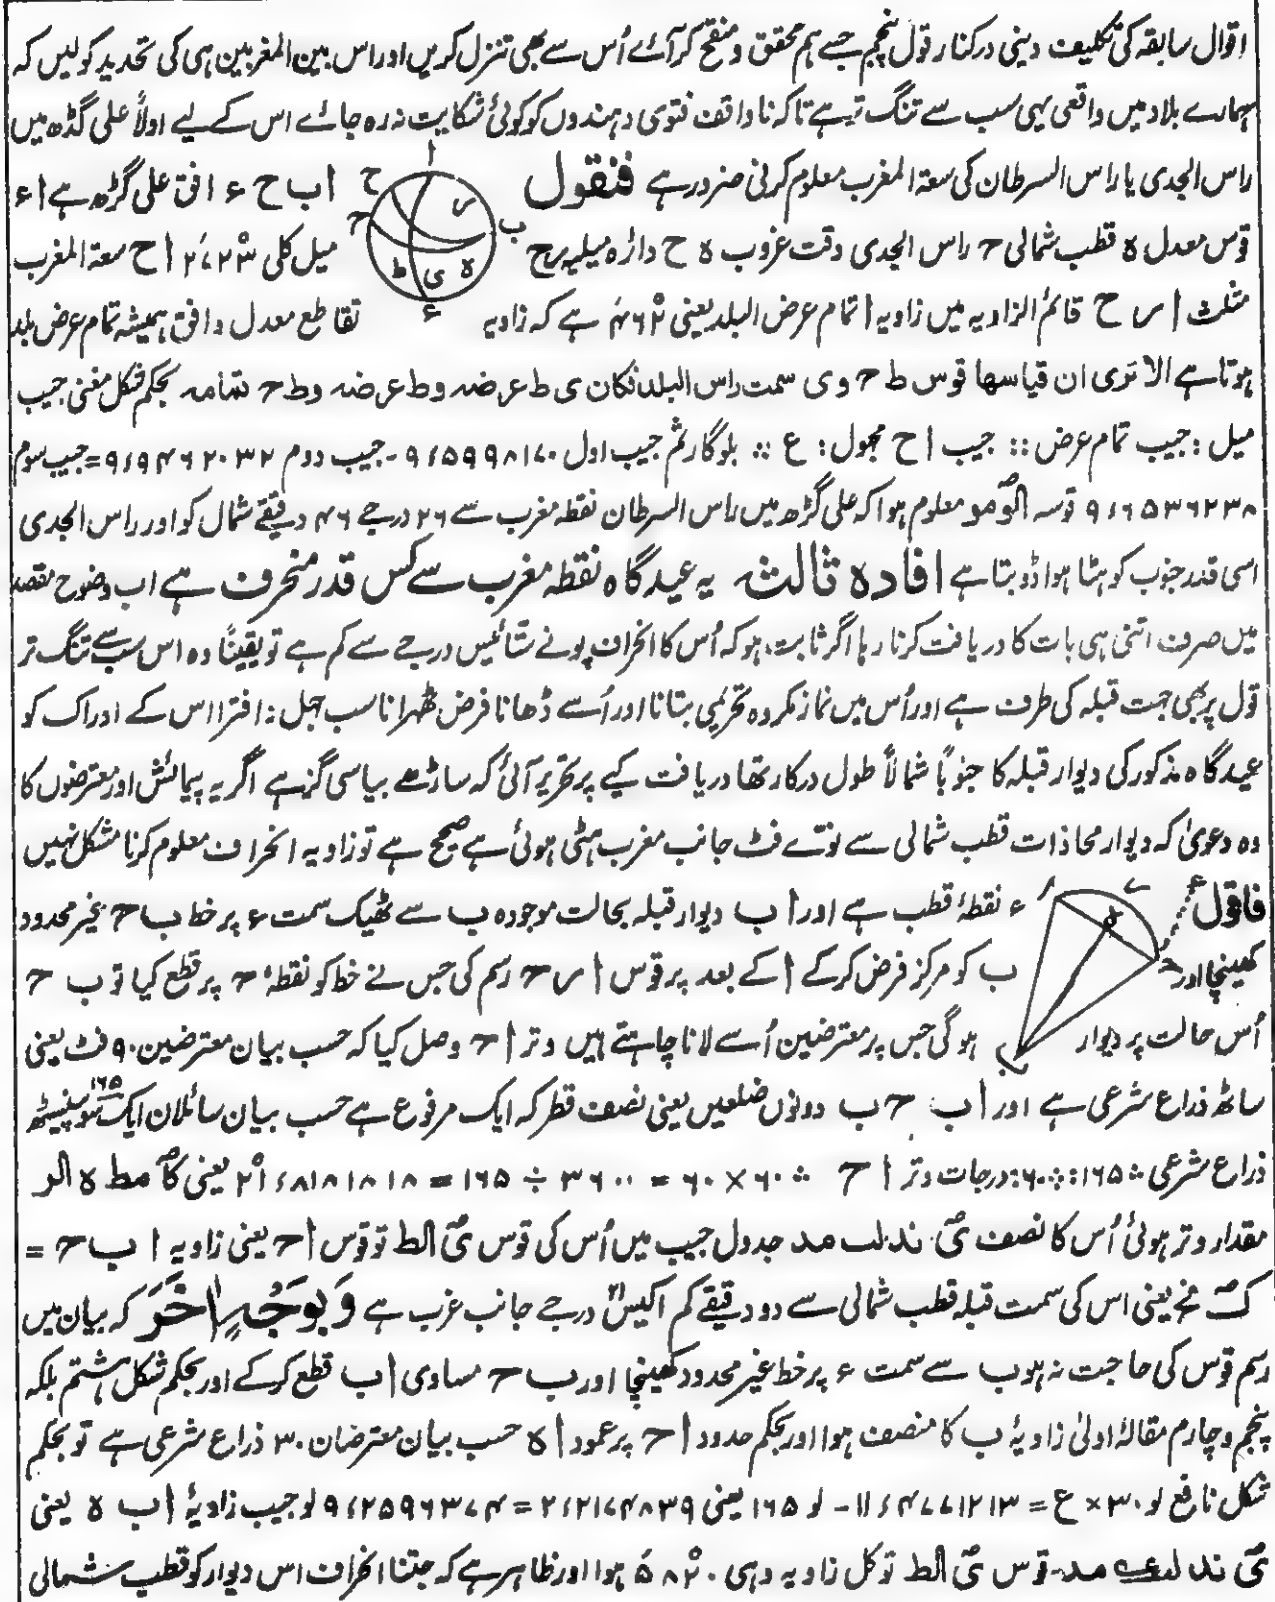 اقوال سابقہ کی تکلیف دینی درکنار قول پنجم جسے ہم محقق و منقح کر آئے اُس سے بھی تنزل کریں اور اس بین المغربین ہی کی تحدید کو لیں کہ
ہمارے بلاد میں واقعی یہی سب سے تنگ تر ہے تاکہ ناواقف فتوی دہندوں کو کوئی شکایت نہ رہ جائے اس کے لیے اولًا علی گڈھ میں
راس الجدی یا راس السرطان کی سعۃ المغرب معلوم کرنی ضرور ہے فنقول ا ب ح ء افق علی گڑھ ہے ا ء
قوس معدل ہ قطب شمالی ح راس الجدی وقت غروب ہ ح دائرہ میلیہ ر ح میل کلی ۲۳ْ ۲۷َ ا ح سعۃ المغرب
مثلث ا ر ح قائم الزاویہ میں زاویہ ا تمام عرض البلد یعنی ۶۲ْ ۴َ ہے کہ زاویہ تقاطع معدل و افق ہمیشہ تمام عرض بلد
ہوتا ہے الا تری ان قیاسھا قوس ط ح و ی سمت راس البلد فکان ی ط عرضہ و ط ء عرضہ و ط ح تمامہ بحکم شکل مغنی جیب
میل : جیب تمام عرض :: جیب ا ح مجہول : ع ∴ بلوگارثم جیب اول ۹ء۵۹۹۸۱۷۰ - جیب دوم ۹ء۹۴۶۲۰۳۲ = جیب سوم
۹ء۶۵۳۶۲۳۸ قوسہ الوْ مو معلوم ہوا کہ علی گڑھ میں راس السرطان نقطہ مغرب سے ۲۶ درجے ۴۶ دقیقے شمال کو اور راس الجدی
اسی قدر جنوب کو ہٹا ہوا ڈوبتا ہے افادہ ثالثہ یہ عیدگاہ نقطہ مغرب سے کس قدر منحرف ہے اب وضوح مقصد
میں صرف اتنی ہی بات کا دریافت کرنا رہا اگر ثابت ہو کہ اُس کا انحراف پونے ستائیس درجے سے کم ہے تو یقینًا وہ اس سب سے تنگ تر
قول پر بھی جہت قبلہ کی طرف ہے اور اُس میں نماز مکروہ تحریمی بتانا اور اُسے ڈھانا فرض ٹھہرانا سب جہل و افترا اس کے ادراک کو
عیدگاہ مذکور کی دیوار قبلہ کا جنوبًا شمالًا طول درکار تھا دریافت کیے پر تحریر آئی کہ ساڑھے بیاسی گز ہے اگر یہ پیمائش اور معترضوں کا
وہ دعویٰ کہ دیوار محاذات قطب شمالی سے نوّے فٹ جانب مغرب ہٹی ہوئی ہے صحیح ہے تو زاویہ انحراف معلوم کرنا مشکل نہیں
فاقول ء نقطۂ قطب ہے اور ا ب دیوار قبلہ بحالت موجودہ ب سے ٹھیک سمت ء پر خط ب ح غیر محدود
کھینچا اور ب کو مرکز فرض کرکے ا کے بعد پر قوس ا ر ح رسم کی جس نے خط کو نقطۂ ح پر قطع کیا تو ب ح
اُس حالت پر دیوار ہوگی جس پر معترضین اُسے لانا چاہتے ہیں وتر ا ح وصل کیا کہ حسب بیان معترضین ۹۰ فٹ یعنی
ساٹھ ذراع شرعی ہے اور ا ب ح ب دونوں ضلعیں یعنی نصف قطر کہ ایک مرفوع ہے حسب بیان سائلان ایک سو پینسٹھ ۱۶۵
ذراع شرعی ∴ ۱۶۵ : ۶۰ :: ۶۰ : درجات وتر ا ح ∴ ۶۰ × ۶۰ = ۳۶۰۰ ÷ ۱۶۵ = ۲۱ْء۸۱۸۱۸۱۸ یعنی کاْ مط ہ الر
مقدار وتر ہوئی اُس کا نصف یْ ند لب مد جدول جیب میں اُس کی قوس یْ الط تو قوس ا ح یعنی زاویہ ا ب ح =
کْ نح یعنی اس کی سمت قبلہ قطب شمالی سے دو دقیقے کم اکیس۲۱ درجے جانب غرب ہے وَبِوَجْہٍ اٰخَرَ کہ بیان میں
رسم قوس کی حاجت نہ ہو ب سے سمت ء پر خط غیر محدود کھینچا اور ب ح مساوی ا ب قطع کرکے اور بحکم شکل ہشتم بلکہ
پنجم و چارم مقالۂ اولیٰ زاویۂ ب کا منصف ہوا اور بحکم حدود ا ح پر عمود ا ہ حسب بیان معترضان ۳۰ ذراع شرعی ہے تو بحکم
شکل نافع لو ۳۰ × ع = ۱۱ء۴۷۷۱۲۱۳ - لو ۱۶۵ یعنی ۲ء۲۱۷۴۸۳۹ = ۹ء۲۵۹۶۳۷۴ لوجیب زاویۂ ا ب ہ یعنی
یْ ند لب مد - قوس یْ الط تو کل زاویہ وہی ۲۰ْ ۵۸َ ہوا اور ظاہر ہے کہ جتنا انحراف اس دیوار کو قطب شمالی